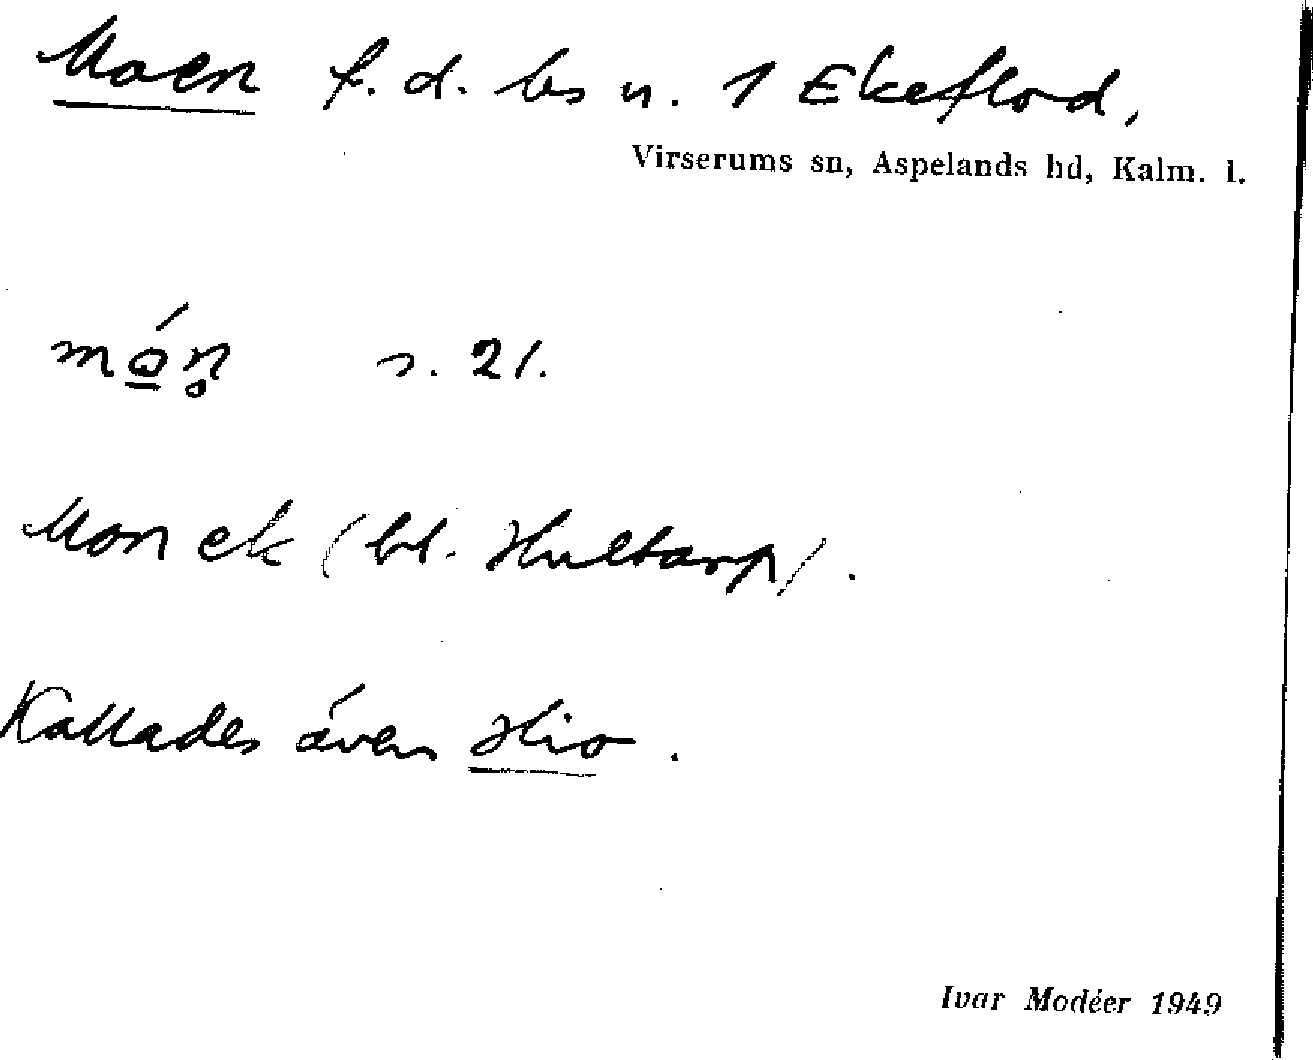 Moen f. d. bs u. 1 Ekeflod,
Virserums sn, Aspelands hd, Kalm. l.
mo̲´n̥ s. 21.
Mon ek (bl. Hultarp).
Kallades även Hio.
Ivar Modéer 1949